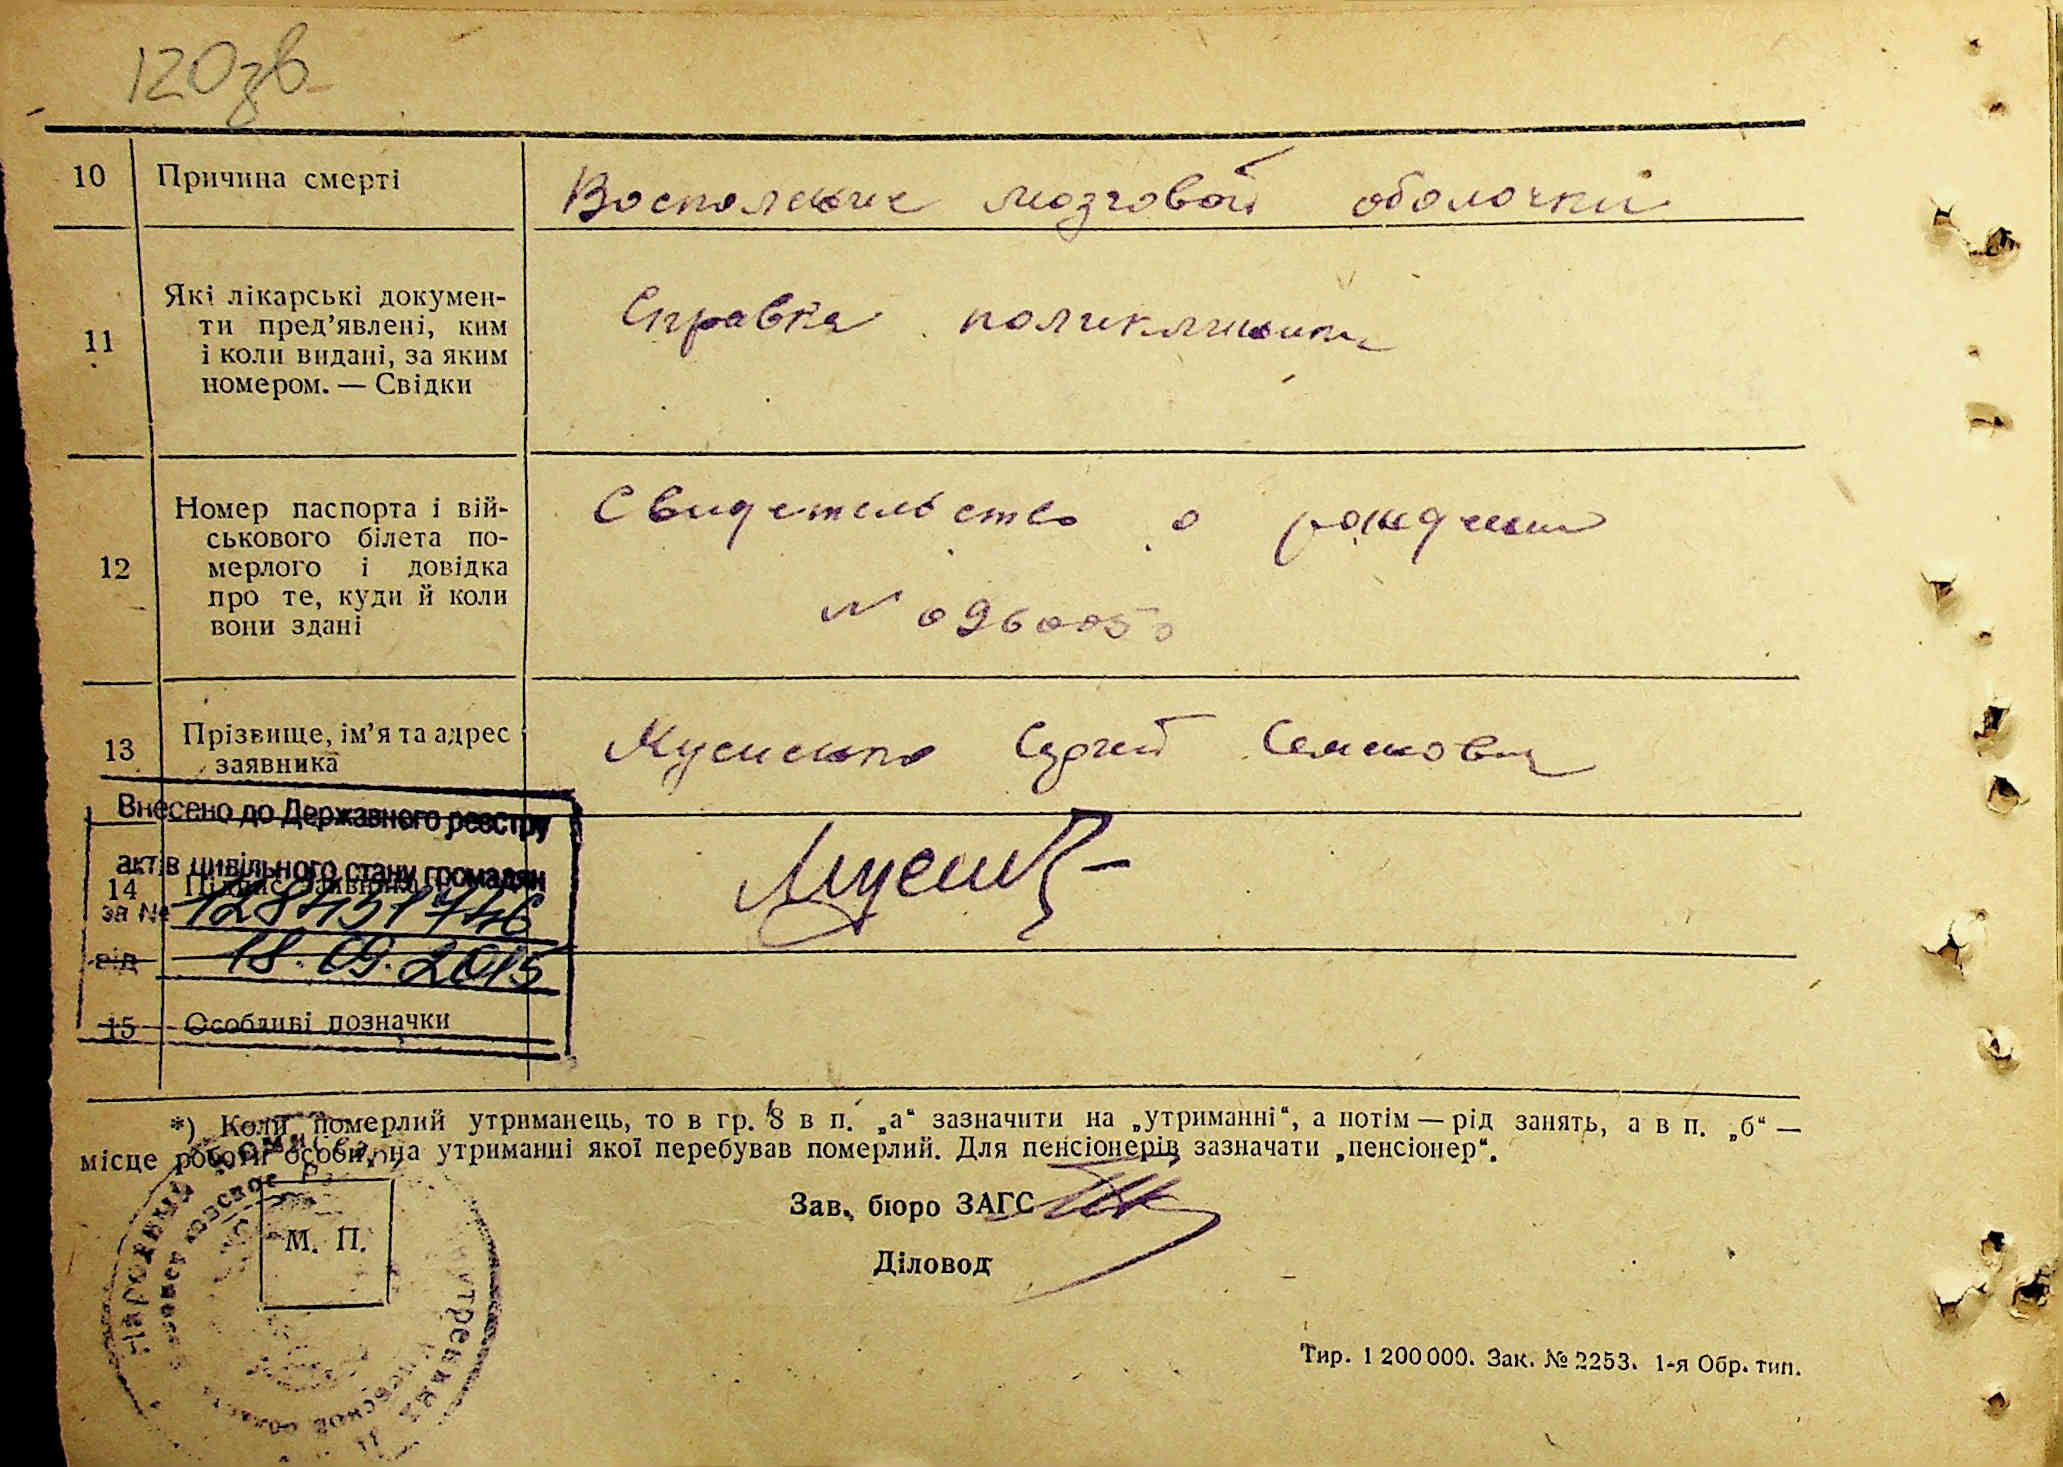 120зв
10 Причина смерті Воспаление мозговой оболочки
11 Які лікарські докумен-
ти пред'явлені, ким
і коли видані, за яким
номером. — Свідки
Справка поликлиники
12 Номер паспорта і вій-
ськового білета по-
мерлого і довідка
про те, куди й коли
вони здані
Свидетельство о рождении
N 0960050
13 Прізвище, ім'я та адрес
заявника
Мусиенко Сергей Семенович
Внесено до Державного реєстру
актів цивільного стану громадян
14 Підпис заявника
за №
від 18.09.2015
15 Особливі позначки
*) Коли померлий утриманець, то в гр. 8 в п. „а“ зазначити на „утриманні“, а потім — рід занять, а в п. „б“ —
місце роботи особи, на утриманні якої перебував померлий. Для пенсіонерів зазначати „пенсіонер“.
М. П.
Зав. бюро ЗАГС
Діловод
Тир. 1 200 000. Зак. № 2253. 1-я Обр. тип.